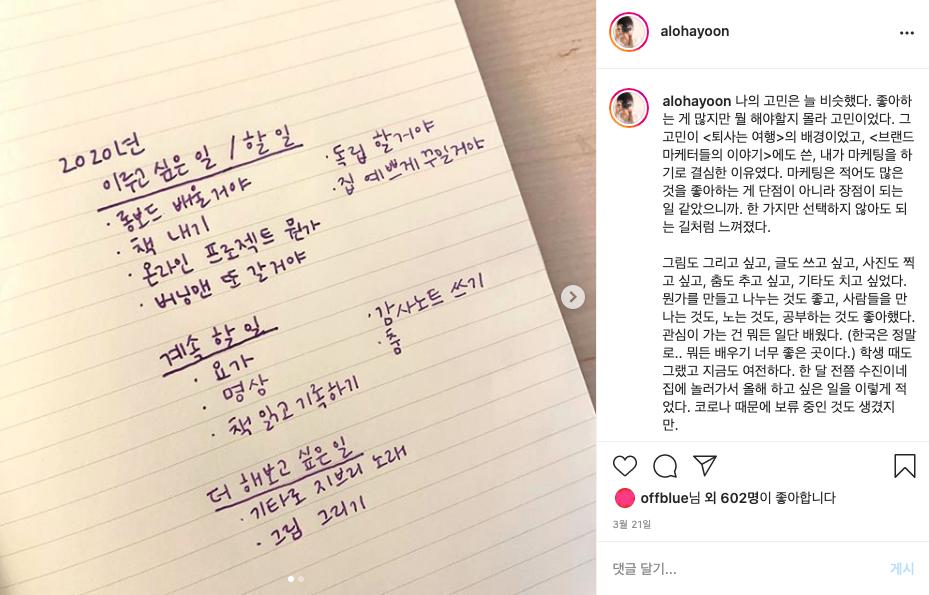 2020년
이루고 싶은 일 / 할 일
· 롱보드 배울거야
· 책 내기
· 온라인 프로젝트 뭔가
· 버닝맨 또 갈거야
· 독립 할거야
· 집 예쁘게 꾸밀거야
계속 할 일
· 요가
· 명상
· 책 읽고 기록하기
· 감사노트 쓰기
· 춤
더 해보고 싶은 일
· 기타로 지브리 노래
· 그림 그리기
alohayoon
alohayoon 나의 고민은 늘 비슷했다. 좋아하
는 게 많지만 뭘 해야할지 몰라 고민이었다. 그
고민이 <퇴사는 여행>의 배경이었고, <브랜드
마케터들의 이야기>에도 쓴, 내가 마케팅을 하
기로 결심한 이유였다. 마케팅은 적어도 많은
것을 좋아하는 게 단점이 아니라 장점이 되는
일 같았으니까. 한 가지만 선택하지 않아도 되
는 길처럼 느껴졌다.
그림도 그리고 싶고, 글도 쓰고 싶고, 사진도 찍
고 싶고, 춤도 추고 싶고, 기타도 치고 싶었다.
뭔가를 만들고 나누는 것도 좋고, 사람들을 만
나는 것도, 노는 것도, 공부하는 것도 좋아했다.
관심이 가는 건 뭐든 일단 배웠다. (한국은 정말
로.. 뭐든 배우기 너무 좋은 곳이다.) 학생 때도
그랬고 지금도 여전하다. 한 달 전쯤 수진이네
집에 놀러가서 올해 하고 싶은 일을 이렇게 적
었다. 코로나 때문에 보류 중인 것도 생겼지
만.
offblue님 외 602명이 좋아합니다
3월 21일
댓글 달기...
게시